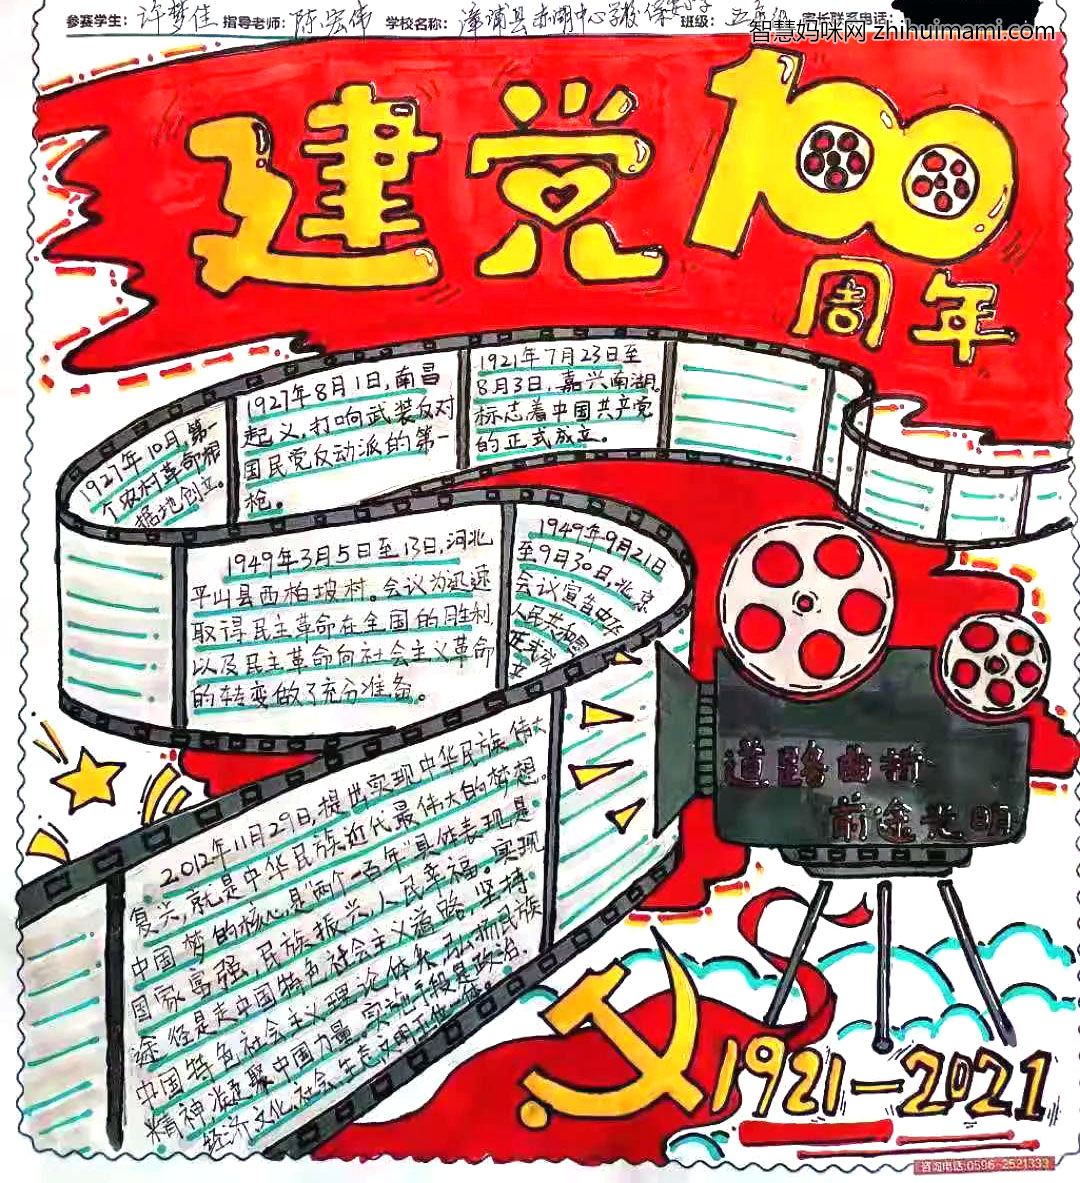 参赛学生: 许梦佳 指导老师: 陈宏伟 学校名称: 漳浦县赤湖中心学校保安小学 班级: 五年级 家长联系电话:
智慧妈咪网 zhihuimami.com
建党100
周年
1927年10月,第一
个农村革命根
据地创立。
1927年8月1日,南昌
起义,打响武装反对
国民党反动派的第一
枪。
1921年7月23日至
8月3日,嘉兴南湖。
标志着中国共产党
的正式成立。
1949年3月5日至13日,河北
平山县西柏坡村。会议为迅速
取得民主革命在全国的胜利
以及民主革命向社会主义革命
的转变做了充分准备。
1949年9月21日
至9月30日,北京
会议宣告中华
人民共和国
正式成
立
2012年11月29日,提出实现中华民族伟大
复兴,就是中华民族近代最伟大的梦想。
中国梦的核心,是“两个一百年”具体表现是
国家富强,民族振兴,人民幸福。实现
途径是走中国特色社会主义道路,坚持
中国特色社会主义理论体系,弘扬民族
精神,凝聚中国力量,实施手段是政治,
经济,文化,社会,生态文明五位一体。
道路曲折
前途光明
1921—2021
咨询电话:0596-2521333